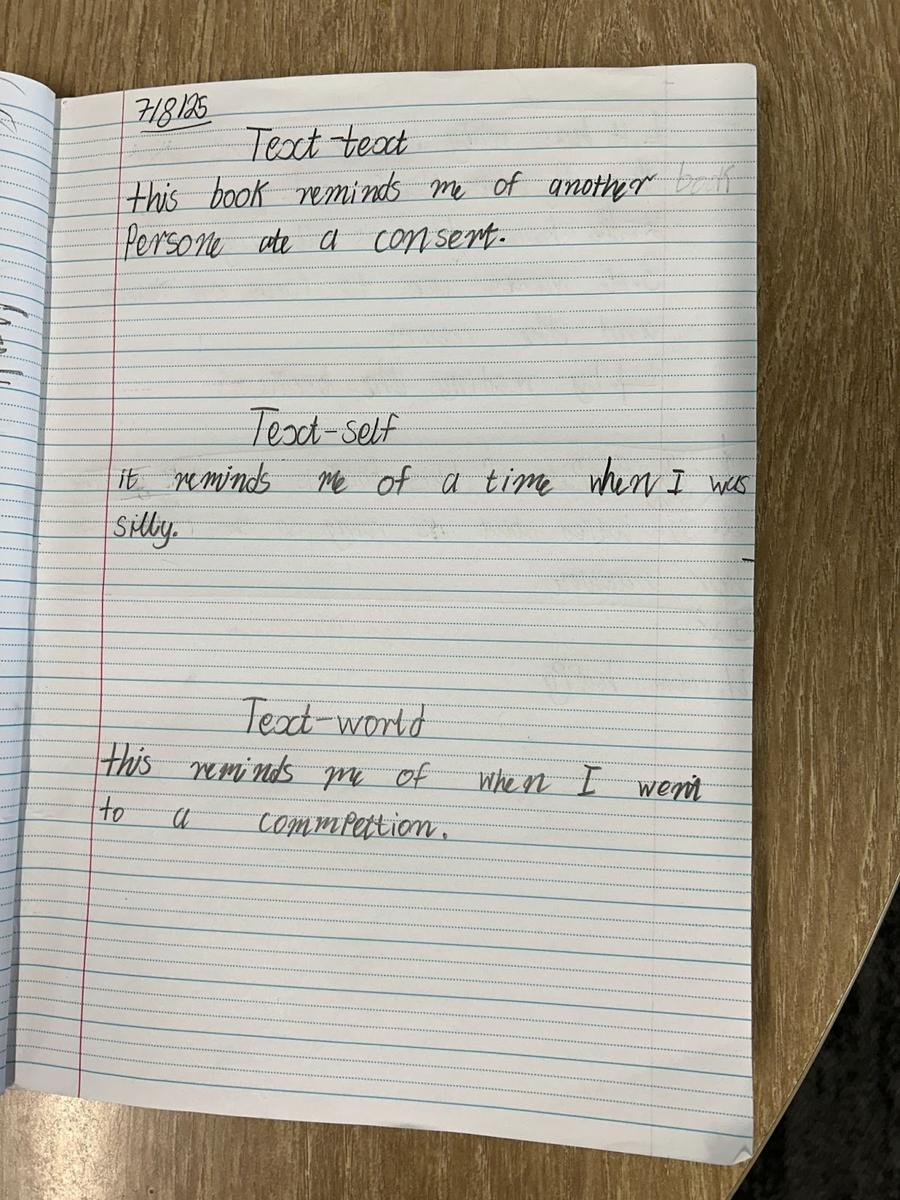 7/8/25
Text-text
this book reminds me of another book
Persone ate a consert.
Text-self
it reminds me of a time when I was
silly.
Text-world
this reminds me of when I went
to a commpettion.